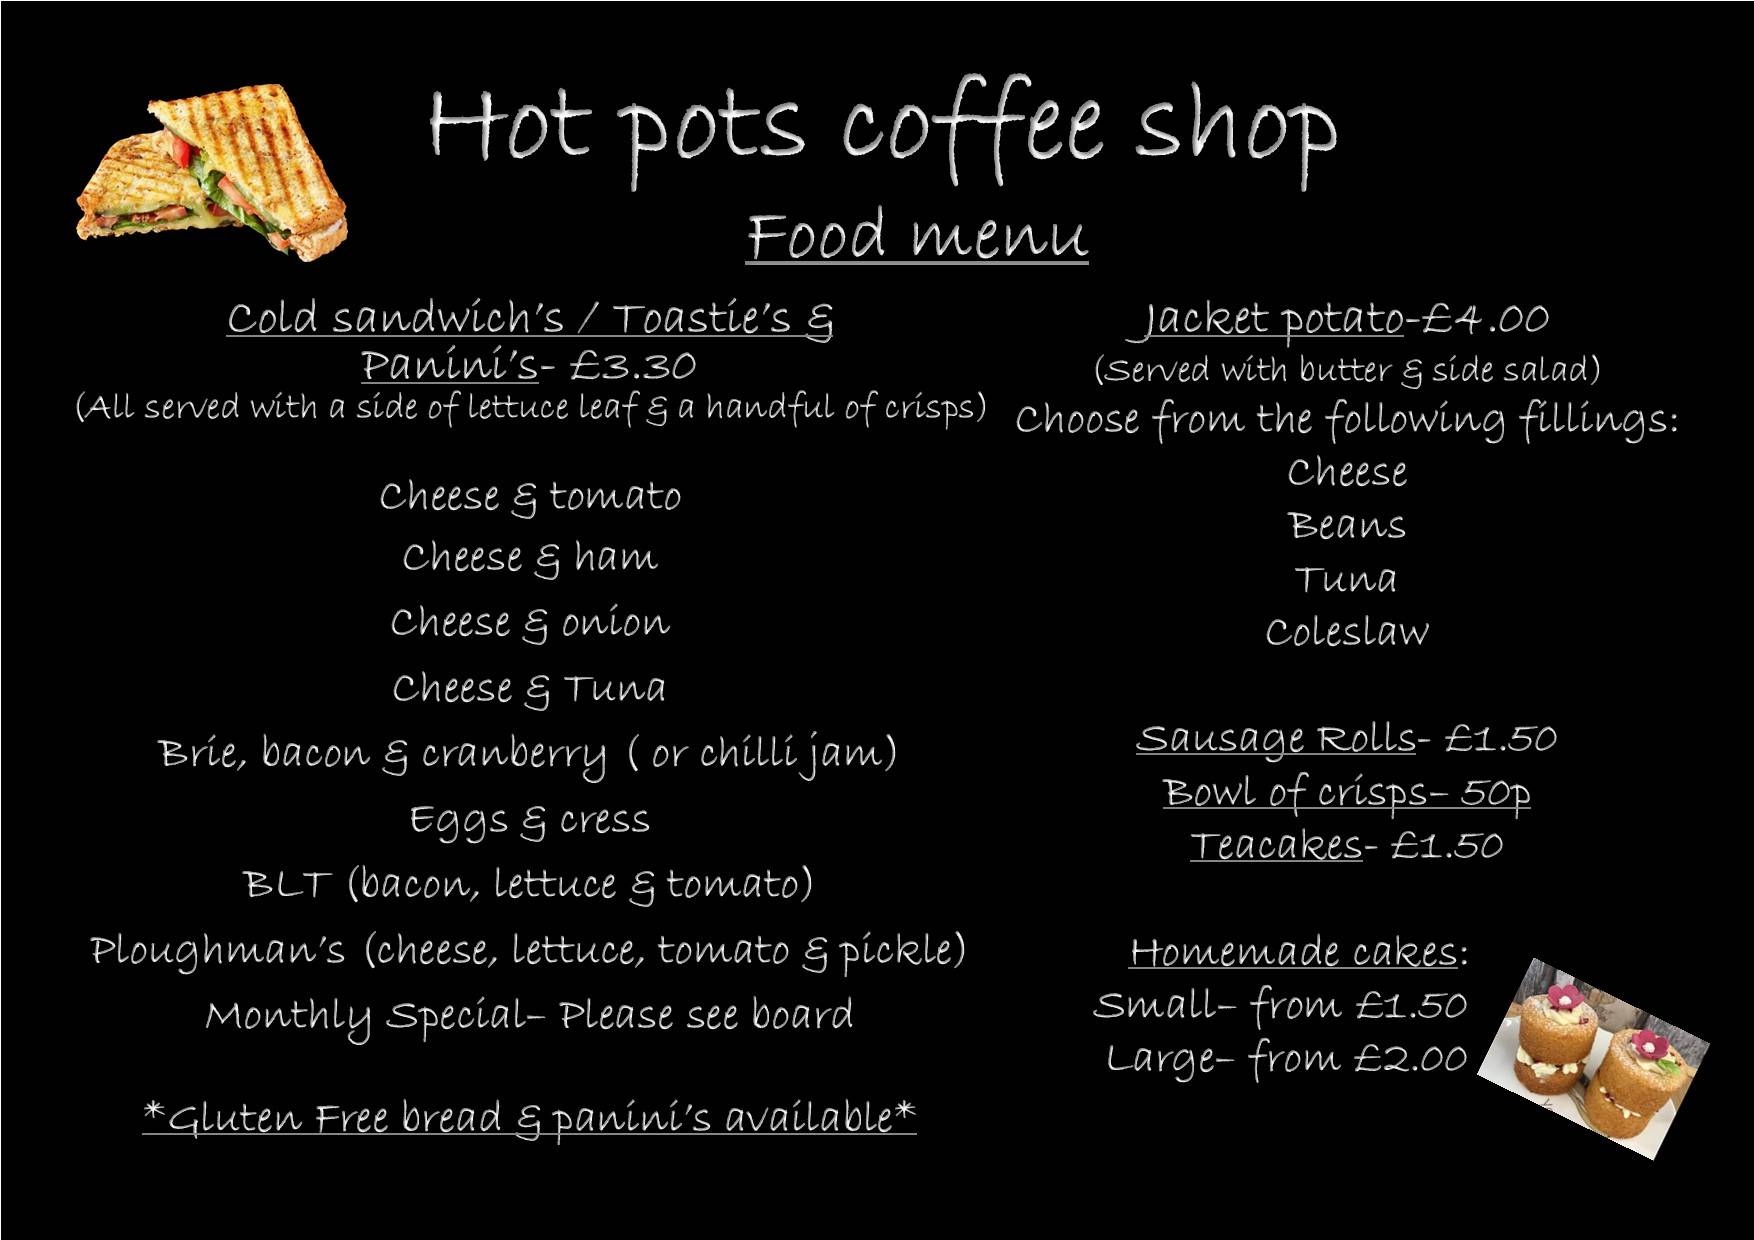 Hot pots coffee shop
Food menu
Cold sandwich's / Toastie's &
Panini's- £3.30
(All served with a side of lettuce leaf & a handful of crisps)
Cheese & tomato
Cheese & ham
Cheese & onion
Cheese & Tuna
Brie, bacon & cranberry ( or chilli jam)
Eggs & cress
BLT (bacon, lettuce & tomato)
Ploughman's (cheese, lettuce, tomato & pickle)
Monthly Special– Please see board
*Gluten Free bread & panini's available*
Jacket potato-£4.00
(Served with butter & side salad)
Choose from the following fillings:
Cheese
Beans
Tuna
Coleslaw
Sausage Rolls- £1.50
Bowl of crisps– 50p
Teacakes- £1.50
Homemade cakes:
Small– from £1.50
Large– from £2.00